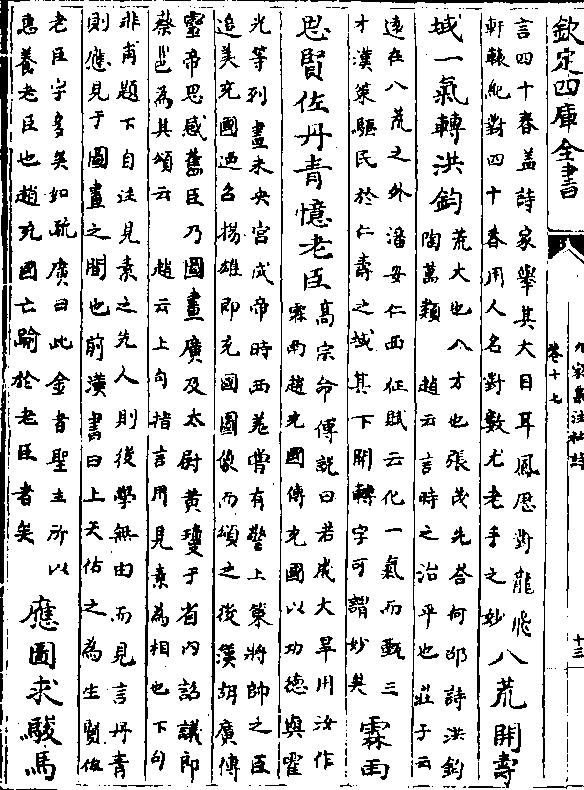 欽定四庫全書
九家集注杜詩
卷十七
十三
言四十春蓋詩家舉其大目耳鳳厯對龍飛
軒轅紀對四十春用人名對數尤老手之妙
八荒開壽
域一氣轉洪鈞
荒大也八才也張茂先荅何邵詩洪鈞
陶萬類 趙云言時之治平也莊子云
遠在八荒之外潘安仁西征賦云化一氣而甄三
才漢策驅民於仁壽之域其下開轉字可謂妙矣
霖雨
思賢佐丹青憶老臣
高宗命傅說曰若歲大旱用汝作
霖雨趙充國傳充國以功德與霍
光等列畫未央宮成帝時西羗嘗有警上策將帥之臣
追美充國迺召揚雄即充國圖像而頌之後漢胡廣傳
靈帝思感舊臣乃圖畫廣及太尉黃瓊于省內詔議郎
蔡邕為其頌云 趙云上句指言用見素為相也下句
非甫題下自注見素之先人則後學無由而見言丹青
則應見于圖畫之間也前漢書曰上天佑之為生賢佐
老臣字多矣如疏廣曰此金者聖主所以
惠養老臣也趙充國亡踰於老臣者矣
應圖求駿馬